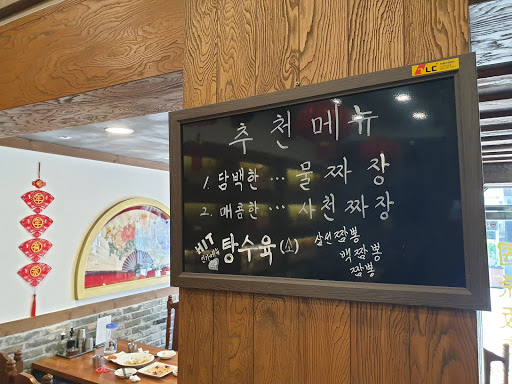 추천메뉴
1. 담백한 ... 물짜장
2. 매콤한 ... 사천짜장
HIT
탕수육(소)
삼선짬뽕
백짬뽕
짬뽕
LC